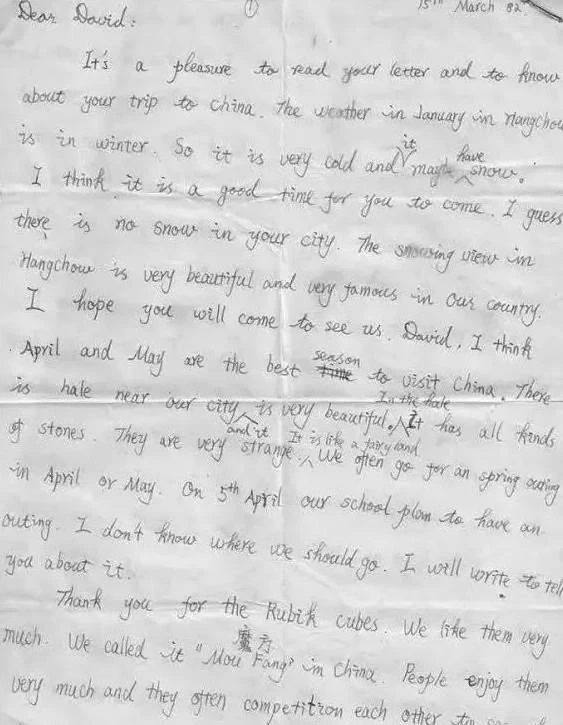 ①
15th March 82.
Dear David:
It's a pleasure to read your letter and to know
about your trip to China. The weather in January in Hangchou
is in winter. So it is very cold and it may have snow.
I think it is a good time for you to come. I guess
there is no snow in your city. The snowing view in
Hangchow is very beautiful and very famous in our country.
I hope you will come to see us. David, I think
April and May are the best season to visit China. There
is hale near our city and it is very beautiful. In the hale It has all kinds
of stones. They are very strange. It is like a fairy land We often go for an spring outing
in April or May. On 5th April our school plan to have an
outing. I don't know where we should go. I will write to tell
you about it.
Thank you for the Rubik cubes. We like them very
much. We called it "Mou Fang" 魔方 in China. People enjoy them
very much and they often competition each other to